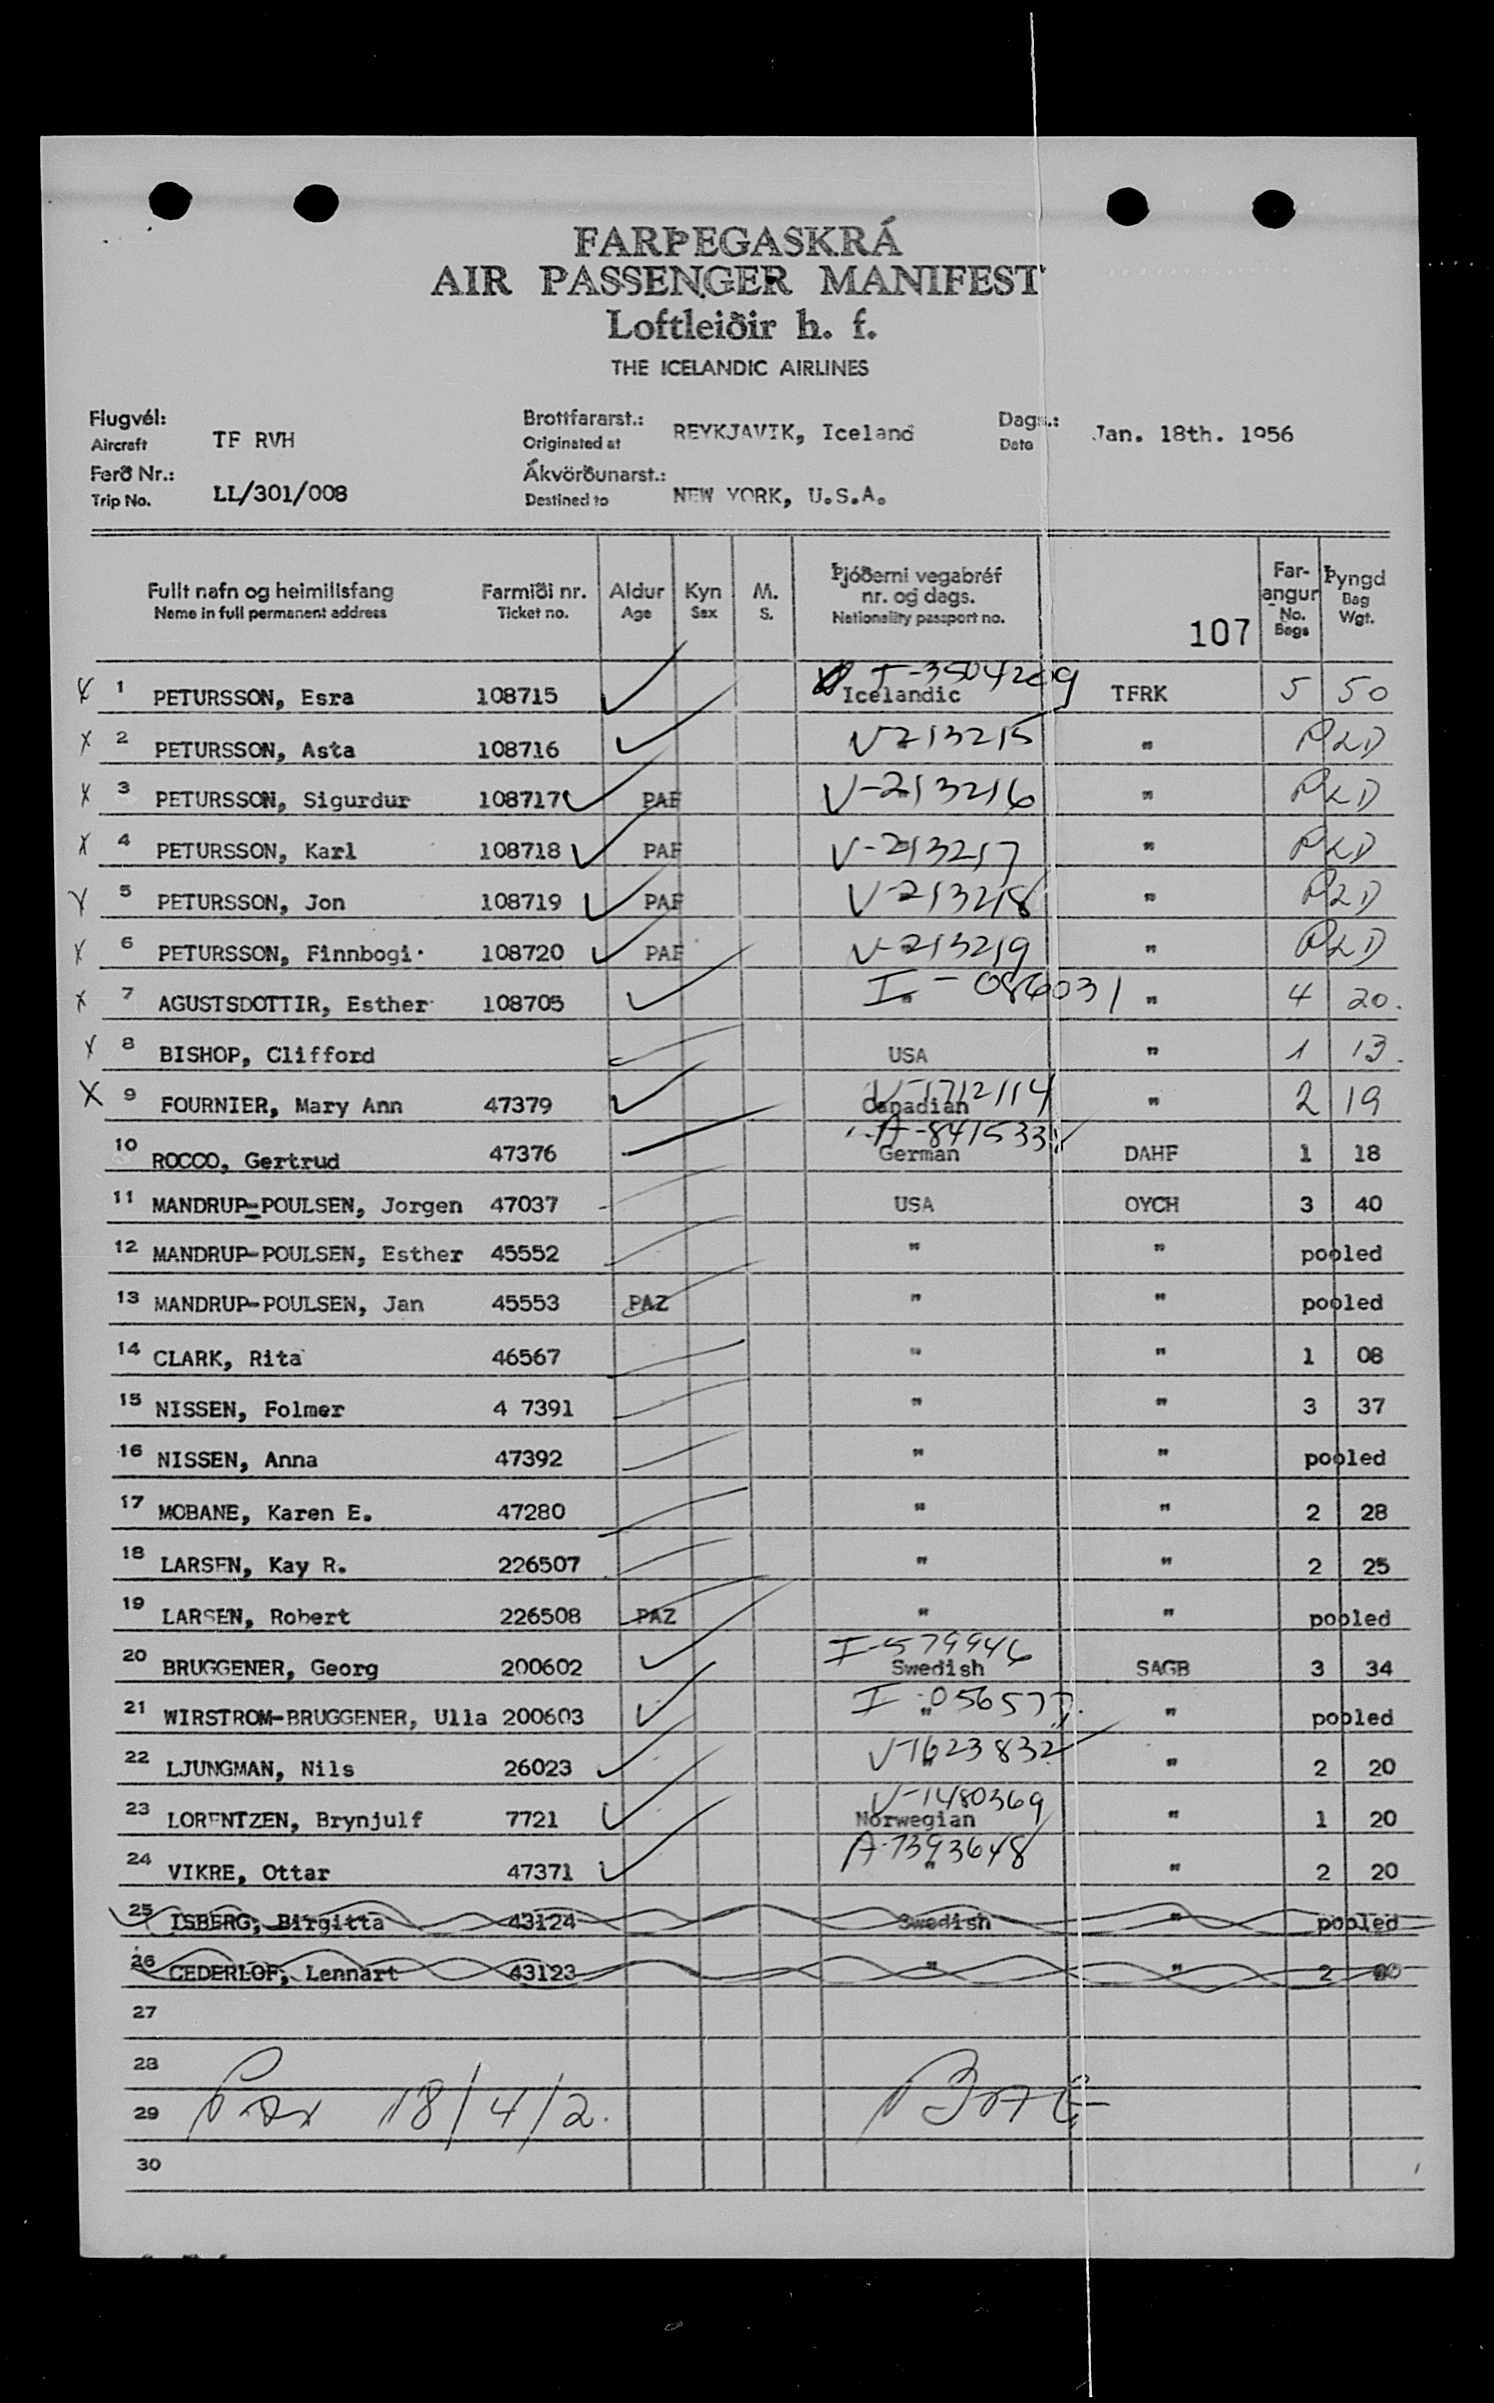 FARÞEGASKRÁ
AIR PASSENGER MANIFEST
Loftleiðir h. f.
THE ICELANDIC AIRLINES
Flugvél: Aircraft TF RVH Brottfararst.: Originated at REYKJAVIK, Iceland Dags.: Date Jan. 18th. 1956
Ferð Nr.: Trip No. LL/301/008 Ákvörðunarst.: Destined to NEW YORK, U.S.A.
Fullt nafn og heimilisfang Farmiði nr. Aldur Kyn M. Þjóðerni vegabréf nr. og dags. Farangur Þyngd
Name in full permanent address Ticket no. Age Sex S. Nationality passport no. 107 No. Bags Bag Wgt.
X 1 PETURSSON, Esra 108715 Icelandic TFRK 5 50
X 2 PETURSSON, Asta 108716 V213215 " PLD
X 3 PETURSSON, Sigurdur 108717 PAF V-213216 " PLD
X 4 PETURSSON, Karl 108718 PAF V-213217 " PLD
X 5 PETURSSON, Jon 108719 PAF V-213218 " PLD
X 6 PETURSSON, Finnbogi 108720 PAF V-213219 " PLD
X 7 AGUSTSDOTTIR, Esther 108705 I-086031 " " 4 20.
X 8 BISHOP, Clifford USA " 1 13.
X 9 FOURNIER, Mary Ann 47379 V-1712114 Canadian " 2 19
10 ROCCO, Gertrud 47376 A-841533 German DAHF 1 18
11 MANDRUP-POULSEN, Jorgen 47037 USA OYCH 3 40
12 MANDRUP-POULSEN, Esther 45552 " " pooled
13 MANDRUP-POULSEN, Jan 45553 PAZ " " pooled
14 CLARK, Rita 46567 " " 1 08
15 NISSEN, Folmer 4 7391 " " 3 37
16 NISSEN, Anna 47392 " " pooled
17 MOBANE, Karen E. 47280 " " 2 28
18 LARSEN, Kay R. 226507 " " 2 25
19 LARSEN, Robert 226508 PAZ " " pooled
20 BRUGGENER, Georg 200602 I-579946 Swedish SAGB 3 34
21 WIRSTROM-BRUGGENER, Ulla 200603 I-056577 " " pooled
22 LJUNGMAN, Nils 26023 V-1623832 " " 2 20
23 LORENTZEN, Brynjulf 7721 V-1480369 Norwegian " 1 20
24 VIKRE, Ottar 47371 A-7393648 " " 2 20
25 ISBERG, Birgitta 43124 Swedish " pooled
26 CEDERLOF, Lennart 43123 " " 2
27
28
29 Pax 18/4/2.
30